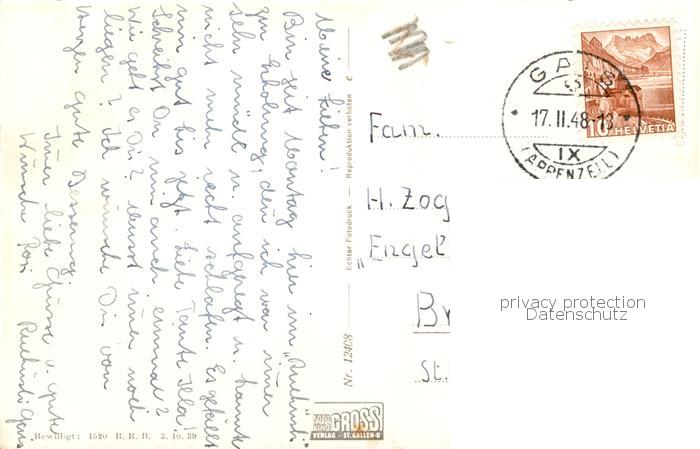 Meine Lieben!
Bin seit Montag hier im „Ruehüsli"
zur Erholung, denn ich war immer
sehr müde u. aufgeregt u. konnte
nicht mehr recht schlafen. Es gefällt
mir gut bis jetzt. Liebe Tante Ida!
Schreibst Du mir auch einmal?
Wie geht es Dir? Musst immer noch
liegen? Ich wünsche Dir von
Herzen gute Besserung.
Immer liebe Grüsse u. gute
Wünsche Rosi
Ruehüsli Gais
Bewilligt: 1520 B. R. B. 3. 10. 39
Nr. 12408
Echter Fotodruck — Reproduktion verboten
FOTO UND GROSS
VERLAG - ST. GALLEN-O
GAIS
17. II. 48 - 13
IX
(APPENZELL)
10 HELVETIA
Fam.
H. Zog
„Engel"
Br
St.
privacy protection
Datenschutz